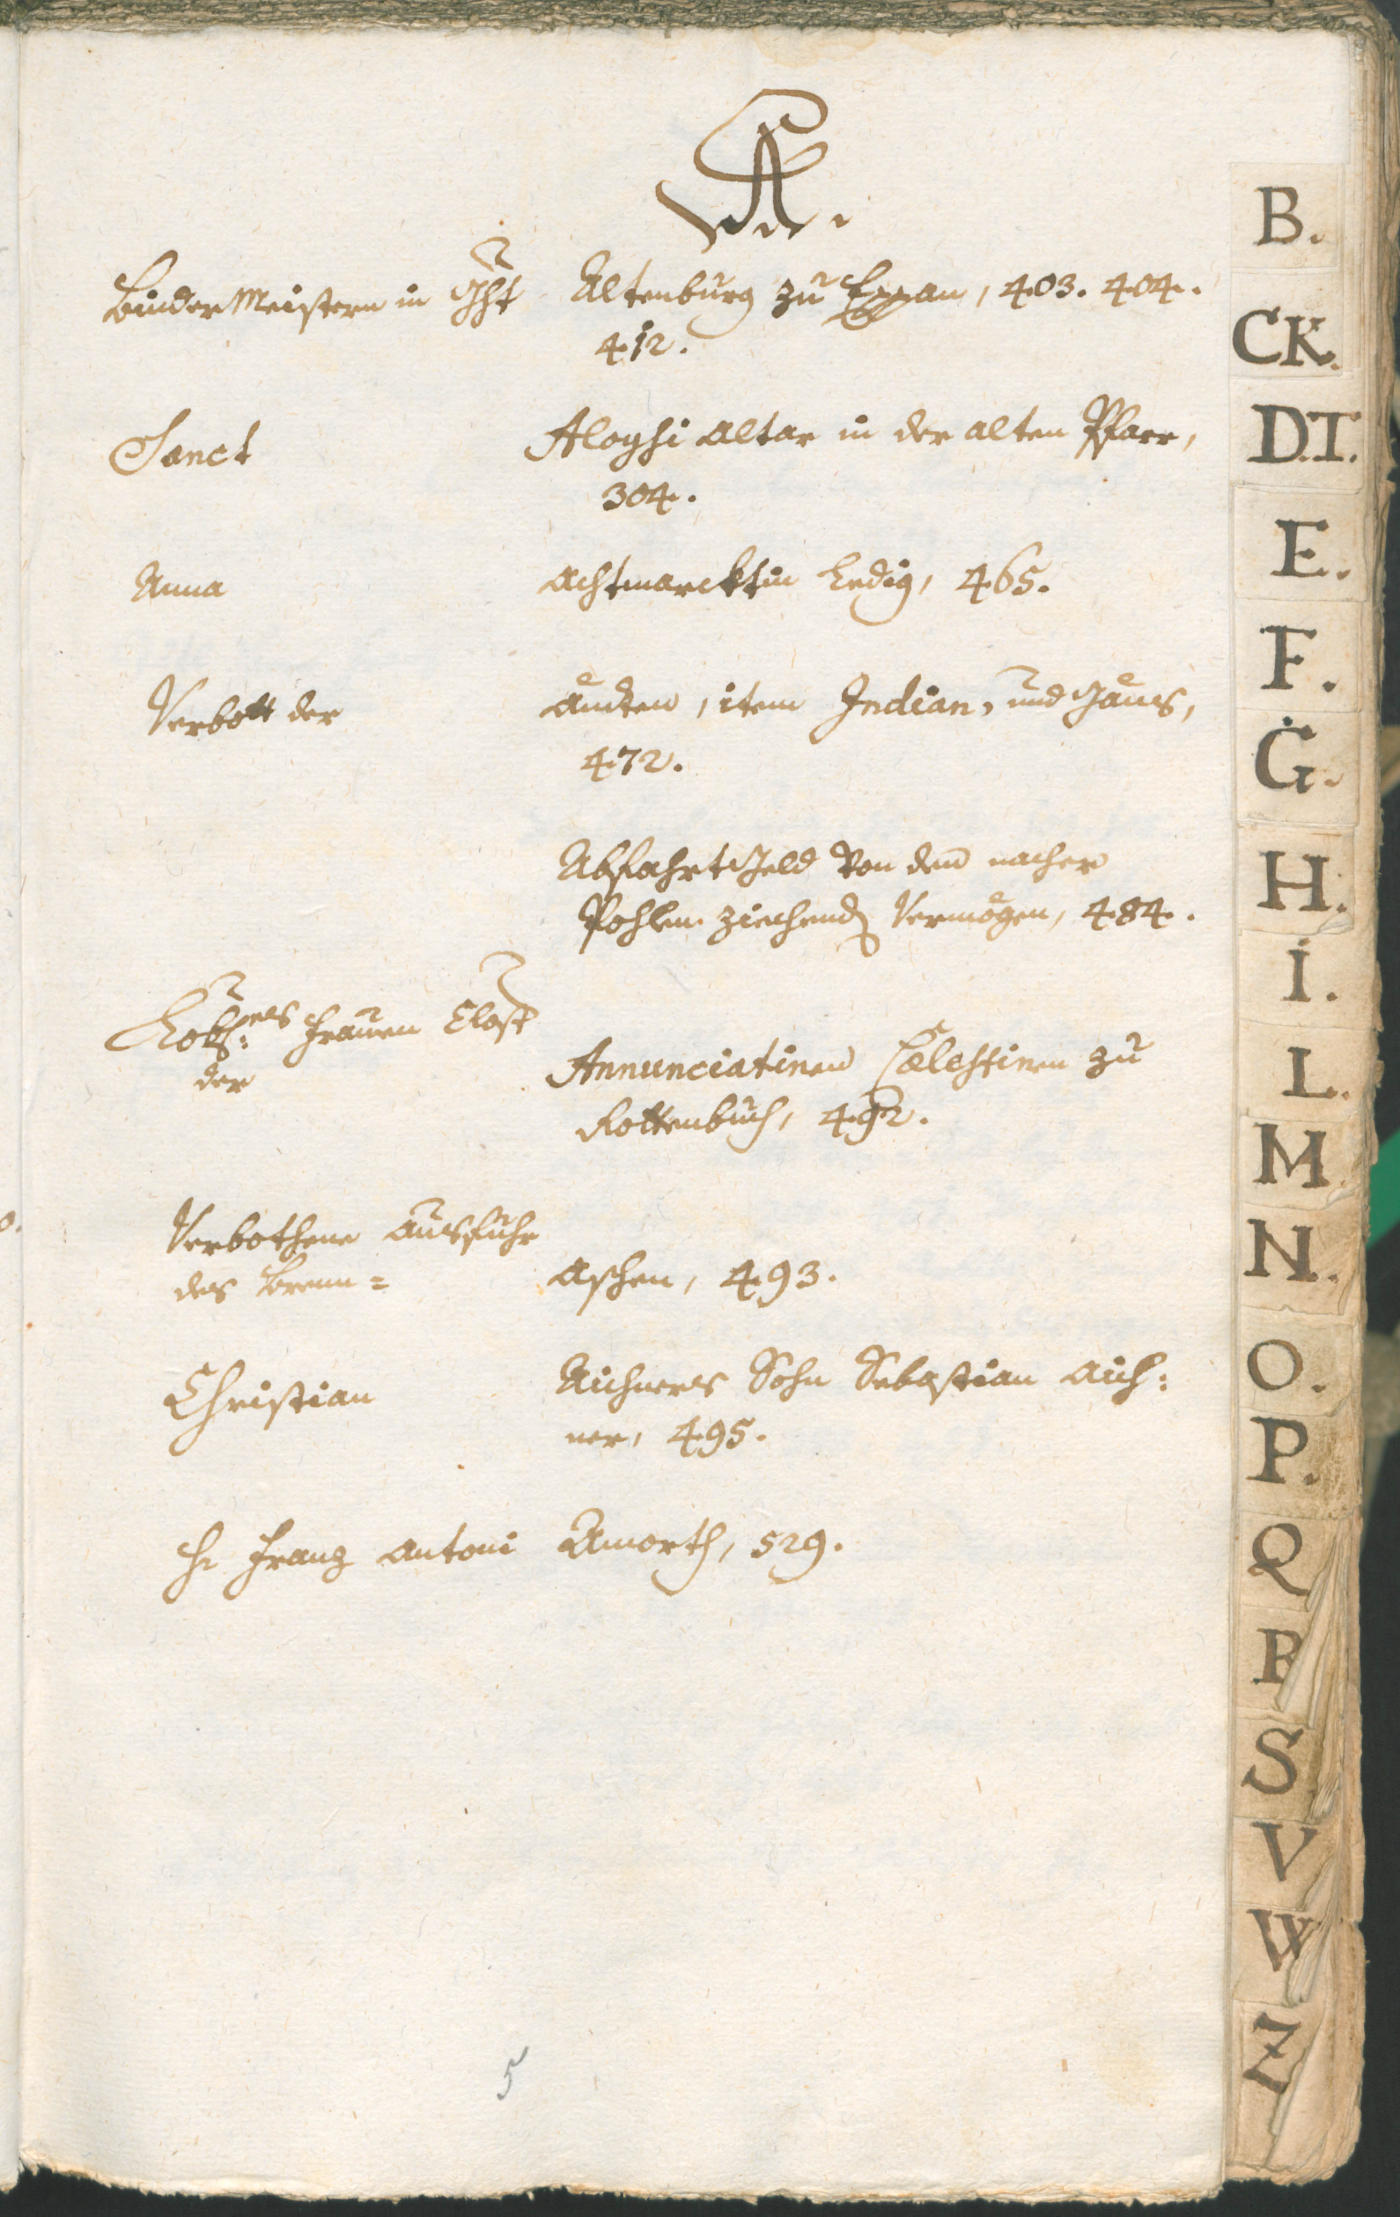 A.
Binder Meistern in Ght Altenburg zu Eppan, 403. 404.
412.
Sanct Aloysi Altar in der alten Pfarr,
304.
Anna Achtmarcktin ledig, 465.
Verbott der Ändten, item Indian, und Gäns,
472.
Abfahrt Geld von dem nacher
Pohlen ziechend Vermögen, 484.
Lobl: Frauen Closter
der Annunciatinen Cælestinen zu
Rottenbuch, 492.
Verbothene Ausfuhr
des Brenn= Aschen, 493.
Christian Aichners Sohn Sebastian Aich:
ner, 495.
H: Franz Antoni Amorth, 529.
5
B.
CK.
D.T.
E.
F.
G.
H.
I.
L.
M
N.
O.
P.
Q
R
S
V
W
Z